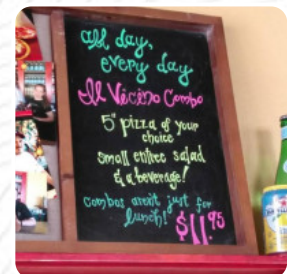 all day,
every day
Il Vicino Combo
5" pizza of your
choice
small entree salad
& a beverage!
combos aren't just for
lunch! $11.95